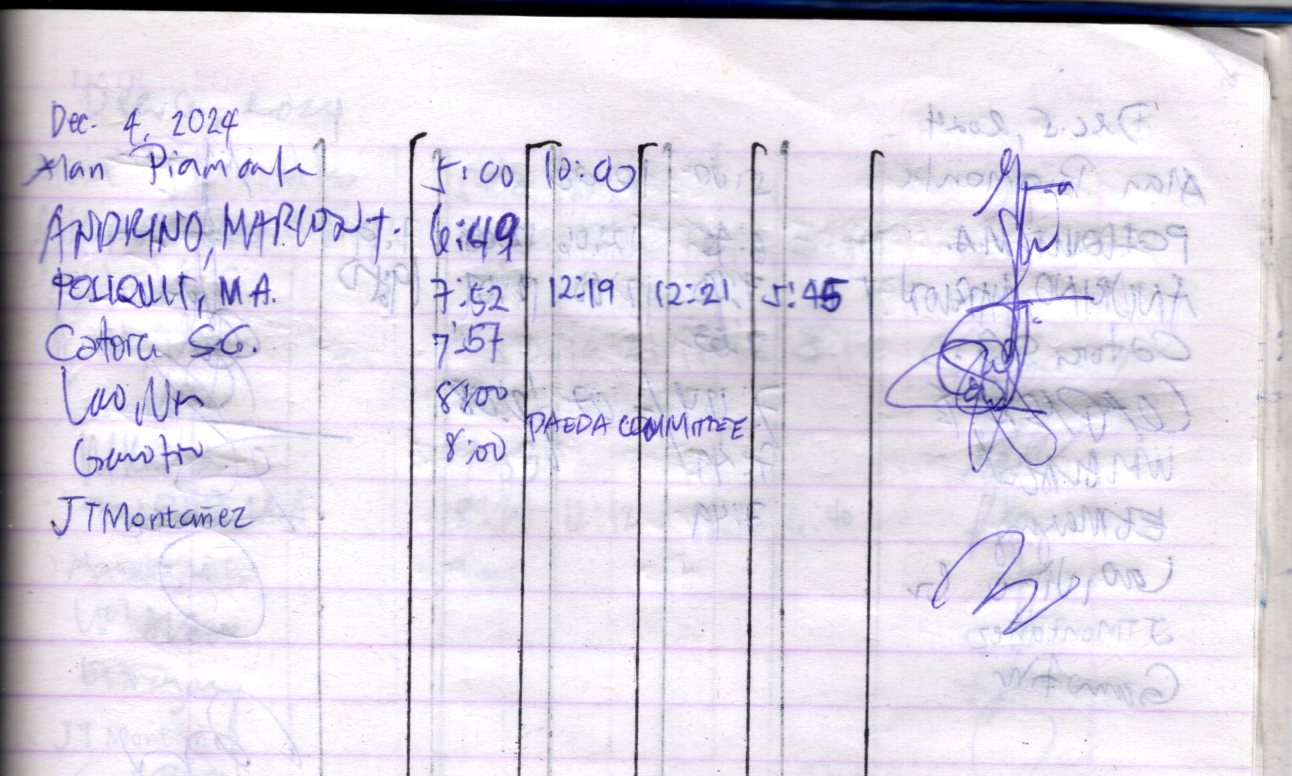 Dec. 4, 2024
Alan Piamonte 5:00 10:00
ANDRINO, MARLON T. 6:49
POLIQUIT, M.A. 7:52 12:19 12:21 5:45
Catora S.G. 7:57
Lao, 8:00
DAEDA COMMITTEE
8:00
JTMontañez